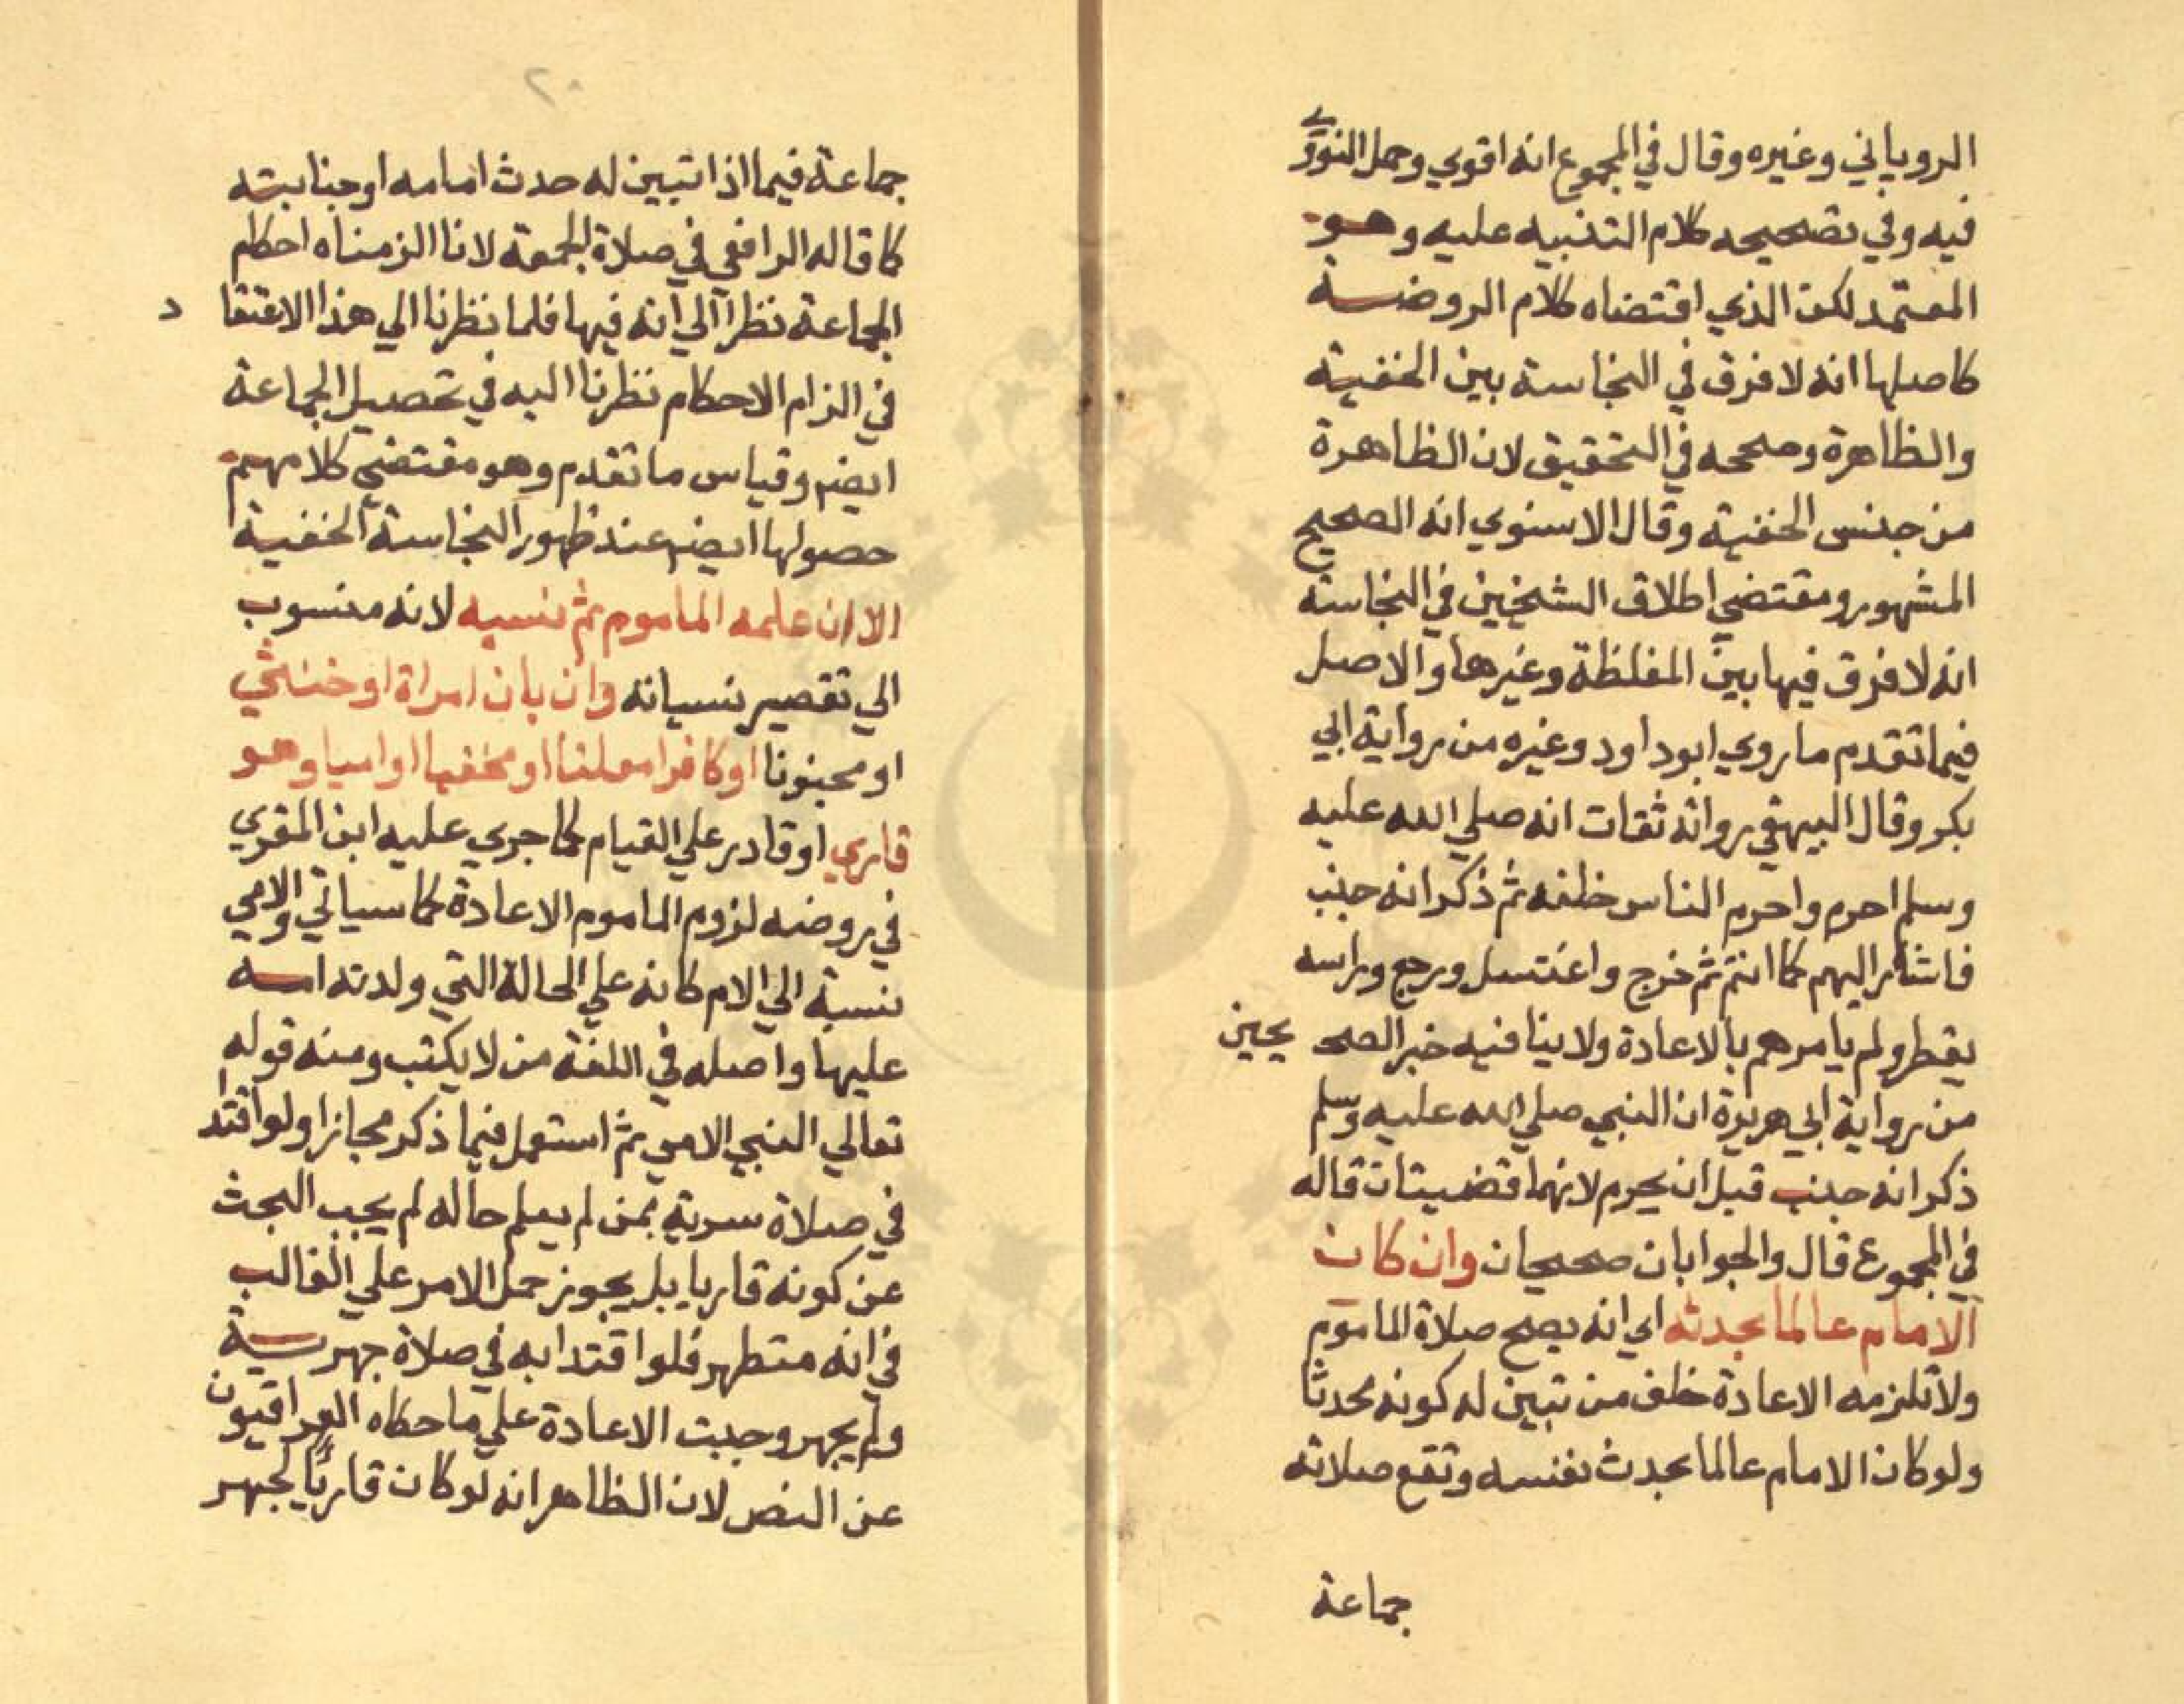 الروياني وغيره وقال في المجموع انه اقوي وحمل النووي
فيه وفي تصحيحه كلام التنبيه عليه وهو
المعتمد لكن الذي اقتضاه كلام الروضة
كاصلها انه لا فرق في النجاسة بين الخفية
والظاهرة وصححه في التحقيق لان الظاهرة
من جنس الخفية وقال الاسنوي انه الصحيح
المشهور ومقتضي اطلاق الشيخين في النجاسة
انه لا فرق فيها بين المغلظة وغيرها والاصل
فيما تقدم ما روي ابو داود وغيره من رواية ابي
بكر وقال البيهقي رواته ثقات انه صلي الله عليه
وسلم احرم واحرم الناس خلفه ثم ذكر انه جنب
فاشار اليهم كما انتم ثم خرج واغتسل ورجع وراسه
يقطر ولم يامرهم بالاعادة ولا ينافيه خبر الصحيحين
من رواية ابي هريرة ان النبي صلي الله عليه وسلم
ذكر انه جنب قبل ان يحرم لانهما قضيتان قاله
في المجموع قال والجوابان صحيحان وان كان
الامام عالما بحدثه اي انه يصح صلاة الماموم
ولا تلزمه الاعادة خلف من تبين له كونه محدثا
ولو كان الامام عالما بحدث نفسه وتقع صلاته
جماعة
٢٠
جماعة فيما اذا تبين له حدث امامه او جنابته
كما قاله الرافعي في صلاة الجمعة لانا الزمناه احكام
الجماعة نظرا الي انه فيها فلما نظرنا الي هذا الاعتقاد
في الزام الاحكام نظرنا اليه في تحصيل الجماعة
ايضم وقياس ما تقدم وهو مقتضي كلامهم
حصولها ايضم عند ظهور النجاسة الخفية
الا ان علمه الماموم ثم نسيه لانه منسوب
الي تقصير نسيانه وان بان امراة او خنثي
او مجنونا او كافرا معلنا او مخفيا او اميا وهو
قاري او قادر علي القيام كما جري عليه ابن المقري
في روضه لزوم الماموم الاعادة كما سياتي والامي
نسبة الي الام كانه علي الحالة التي ولدته امه
عليها واصله في اللغة من لا يكتب ومنه قوله
تعالي النبي الامي ثم استعمل فيما ذكر مجازا ولو اقتدا
في صلاة سرية بمن لم يعلم حاله لم يجب البحث
عن كونه قاريا بل يجوز حمل الامر علي الغالب
في انه متطهر فلو اقتدا به في صلاة جهرية
ولم يجهر وجبت الاعادة علي ما حكاه العراقيون
عن النص لان الظاهر انه لو كان قارئا لجهر